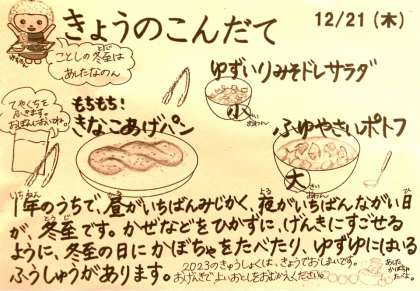 きょうのこんだて
12/21 (木)
ことしの冬至は
あしたなのん
ゆずいりみそドレサラダ
小
てやくちを
ふきます。
おぼんにおいてね。
もちもち!
きなこあげパン
ふゆやさいポトフ
大
1年のうちで、昼がいちばんみじかく、夜がいちばんながい日
が、冬至です。かぜなどをひかずに、げんきにすごせる
ように、冬至の日にかぼちゃをたべたり、ゆずゆにはいる
ふうしゅうがあります。
2023のきゅうしょくは、きょうでおしまいです。
おげんきでよいおとしをおむかえください。
あした
かぼちゃ
たべよ。